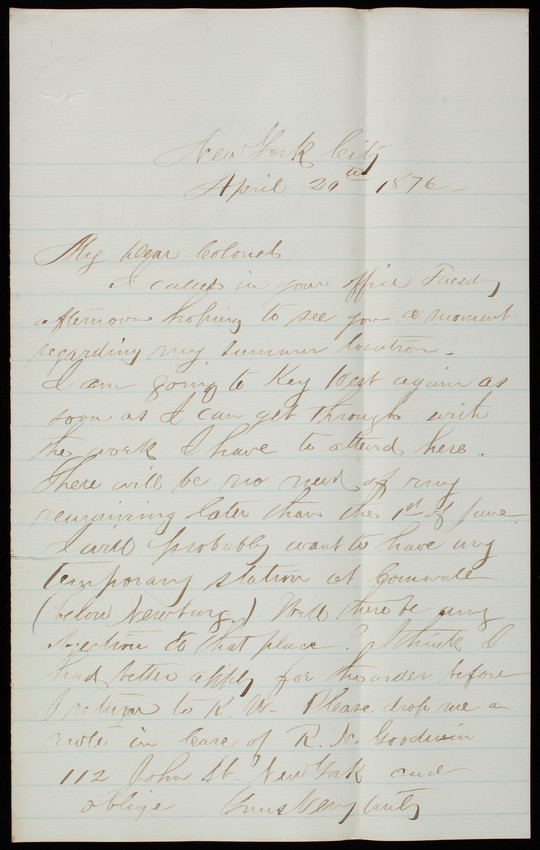 New York City
April 20th 1876 -
My Dear Colonel
I called in your office Tuesday
afternoon hoping to see you a moment
regarding my summer location -
I am going to Key West again as
soon as I can get through with
the work I have to attend here.
There will be no need of my
remaining later than the 1st of June.
I will probably want to have my
temporary station at Cornwall
(below Newburg.) Will there be any
objection to that place? I think I
had better apply for the order before
I return to K. W. Please drop me a
note in care of R. N. Goodwin
112 John St. New York and
oblige Yours Very truly